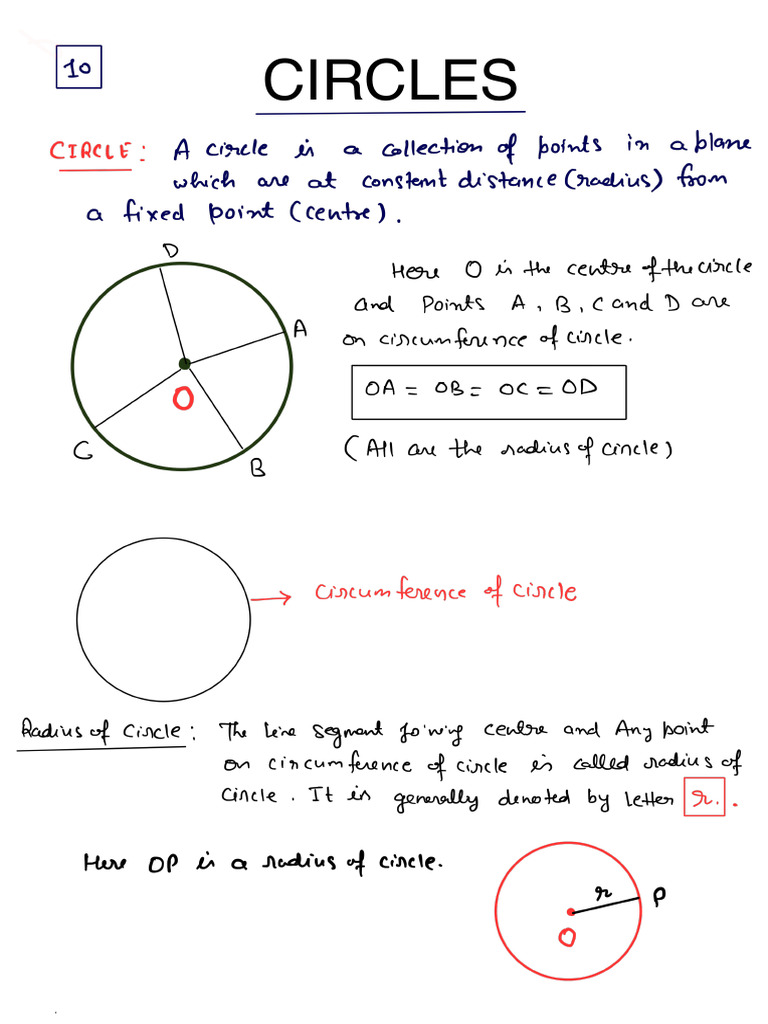 10
CIRCLES
CIRCLE: A circle is a collection of points in a plane
which are at constant distance (radius) from
a fixed point (centre).
D
Here O is the centre of the circle
and Points A, B, C and D are
A
on circumference of circle.
O
OA = OB = OC = OD
C
(All are the radius of circle)
B
Circumference of Circle
Radius of Circle: The line segment joining centre and Any point
on circumference of circle is called radius of
circle. It is generally denoted by letter r.
Here OP is a radius of circle.
r
P
O